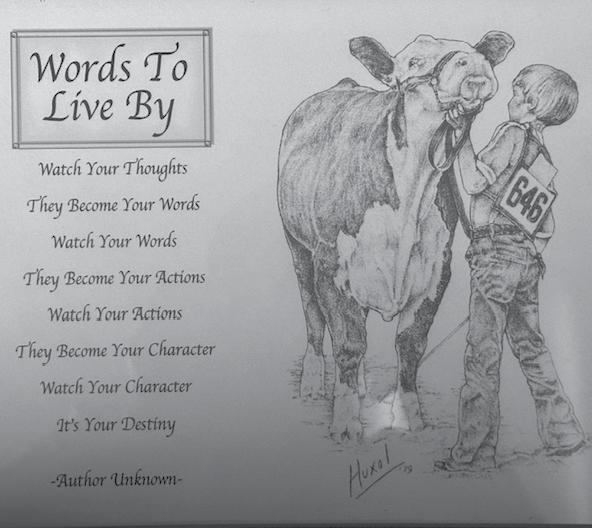 Words To
Live By
Watch Your Thoughts
They Become Your Words
Watch Your Words
They Become Your Actions
Watch Your Actions
They Become Your Character
Watch Your Character
It's Your Destiny
-Author Unknown-
646
Huxol '19